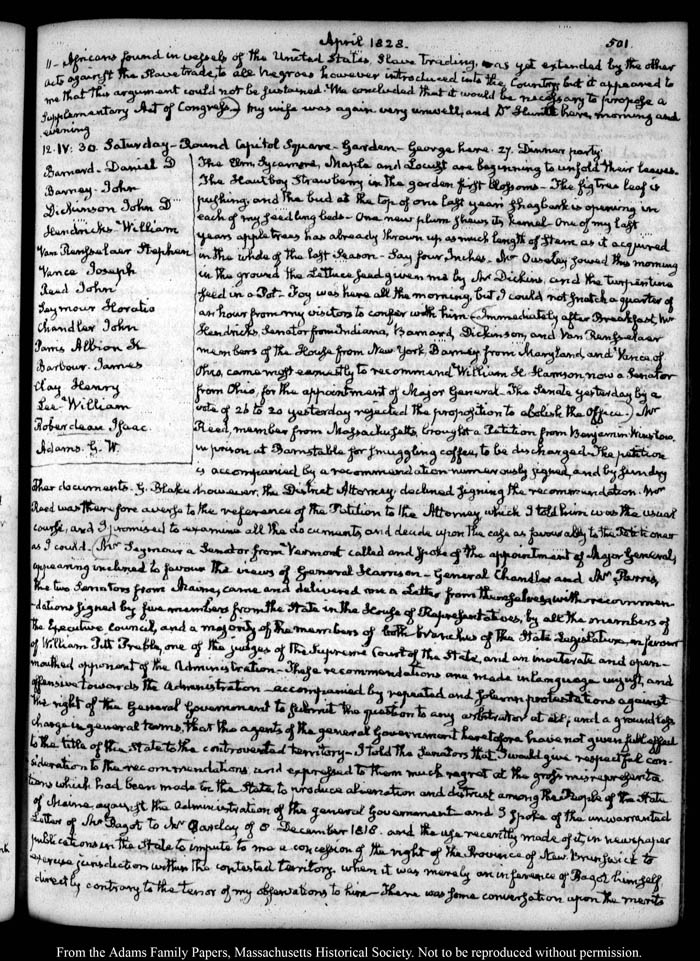 April 1828.
501
11- Africans found in vessels of the United States, Slave trading, was yet extended by the other
acts against the Slave trade, to all negroes however introduced into the Country, but it appeared to
me that this argument could not be sustained. We concluded that it would be necessary to propose a
Supplementary Act of Congress) My wife was again very unwell, and Dr Huntt here, morning and
evening
12. IV: 30. Saturday- Round Capitol Square- Garden- George here. 27. Dinner party
Barnard- Daniel D
Barney- John
Dickinson John D
Hendricks William
Van Rensselaer Stephen
Vance Joseph
Reed John
Seymour Horatio
Chandler John
Parris Albion K
Barbour James
Clay Henry
Lee William
Roberdeau Isaac
Adams. G. W.
The Elm, Sycamore, Maple and Locust are beginning to unfold their leaves.
The Hautboy Strawberry in the garden first blossoms- The figtree leaf is
pushing, and the bud at the top of one last year's shagbark is opening in
each of my seedling beds- One new plum shews its kernel- One of my last
years apple trees has already thrown up as much length of stem as it acquired
in the whole of the last Season- Say four Inches. Mr Ouseley sowed this morning
in the ground the Lettuce seed given me by Mr Dickins, and the turpentine
seed in a Pot- Foy was here all the morning, but I could not snatch a quarter of
an hour from my visitors to confer with him (Immediately after Breakfast, Mr
Hendricks, Senator from Indiana, Barnard, Dickinson, and Van Rensselaer
members of the House from New York, Barney from Maryland, and Vance of
Ohio, came most earnestly to recommend William H. Harrison now a Senator
from Ohio, for the appointment of Major General- The Senate yesterday by a
vote of 26 to 20 yesterday rejected the proposition to abolish the Office.) Mr
Reed, member from Massachusetts, brought a Petition from Benjamin Winslow
in prison at Barnstable for smuggling coffee, to be discharged. The petition
is accompanied by a recommendation numerously signed, and by sundry
other documents. G. Blake however, the District Attorney, declined signing the recommendation. Mr
Reed was therefore averse to the reference of the Petition to the Attorney, which I told him was the usual
course, and I promised to examine all the documents, and decide upon the case as favourably to the Petitioner
as I could. (Mr Seymour a Senator from Vermont called and spoke of the appointment of Major General,
appearing inclined to favour the views of General Harrison- General Chandler and Mr Parris,
the two Senators from Maine, came and delivered me a Letter from themselves, with recommen-
-dations signed by five members from the State in the House of Representatives, by all the members of
the Executive Council, and a majority of the members of both branches of the State Legislature, in favour
of William Pitt Preble, one of the judges of the Supreme Court of the State, and an inveterate and open-
mouthed opponent of the Administration- These recommendations are made in language unjust, and
offensive towards the Administration- accompanied by repeated and solemn protestations against
the right of the General Government to submit the question to any arbitrator at all; and a groundless
charge in general terms, that the agents of the general Government heretofore have not given full effect
to the title of the State to the controverted territory- I told the Senators that I would give respectful con-
sideration to the recommendations, and expressed to them much regret at the gross misrepresenta-
tions which had been made in the State, to produce alienation and distrust among the People of the State
of Maine, against the Administration of the general Government- and I spoke of the unwarranted
Letter of Mr Bagot to Mr Barclay of 8. December 1818. and the use recently made of it, in newspaper
publications in the State to impute to me a concession of the right of the Province of New Brunswick to
exercise jurisdiction within the contested territory when it was merely an inference of Bagot himself
directly contrary to the tenor of my observations to him- There was some conversation upon the merits
From the Adams Family Papers, Massachusetts Historical Society. Not to be reproduced without permission.